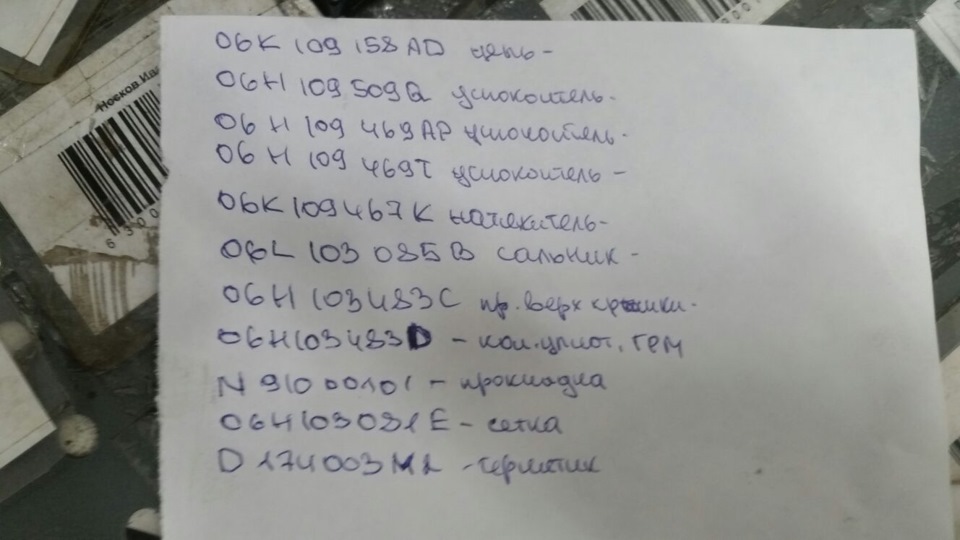 Носков Ива
6300
06K 109 158 AD цепь -
06H 109 509 Q успокоитель -
06 H 109 469 AP успокоитель -
06 H 109 469T успокоитель -
06K 109 467 K натяжитель -
06L 103 085 B сальник -
06H 103 483 C пр. верх крышки -
06H 103 483 D - кол. уплот. ГРМ
N 910 00101 - прокладка
06H 103 081 E - сетка
D 174 003 M2 - герметик